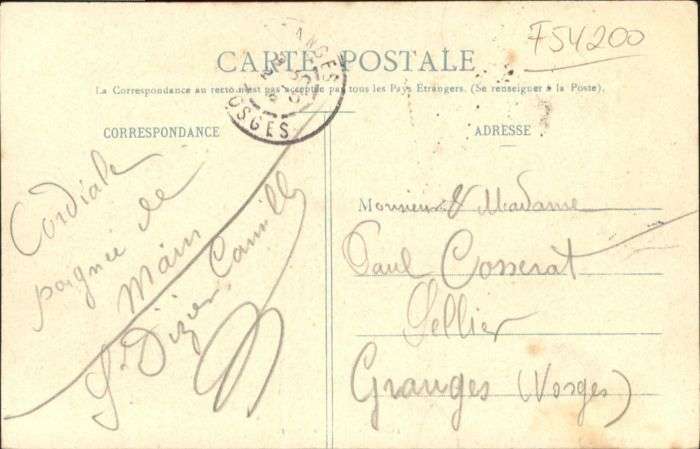 F54200
CARTE POSTALE
La Correspondance au recto n'est pas acceptée par tous les Pays Etrangers. (Se renseigner à la Poste).
ANGES
OSGES
CORRESPONDANCE
ADRESSE
Cordiale
poignée de
Main
St Dizier Camille
Monsieur & Madame
Paul Cosserat
Sellier
Granges (Vosges)